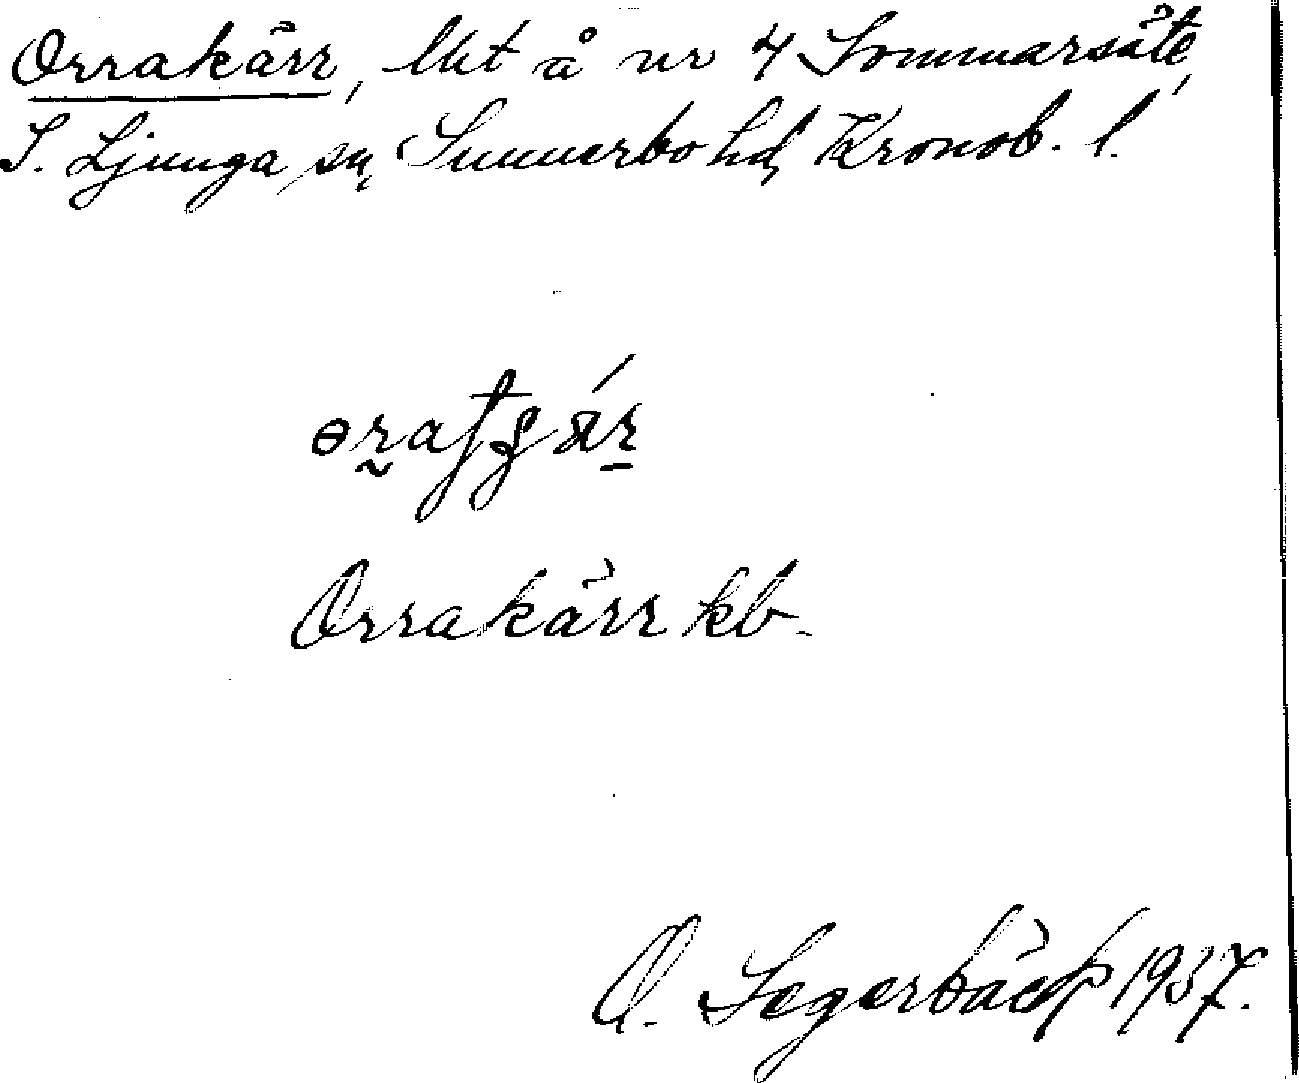 Orrakärr, lht å nr 4 Sommarsäte,
S. Ljunga sn, Sunnerbo hd, Kronob. l.
Orrakärr kb.
O. Segerbäck 1937.